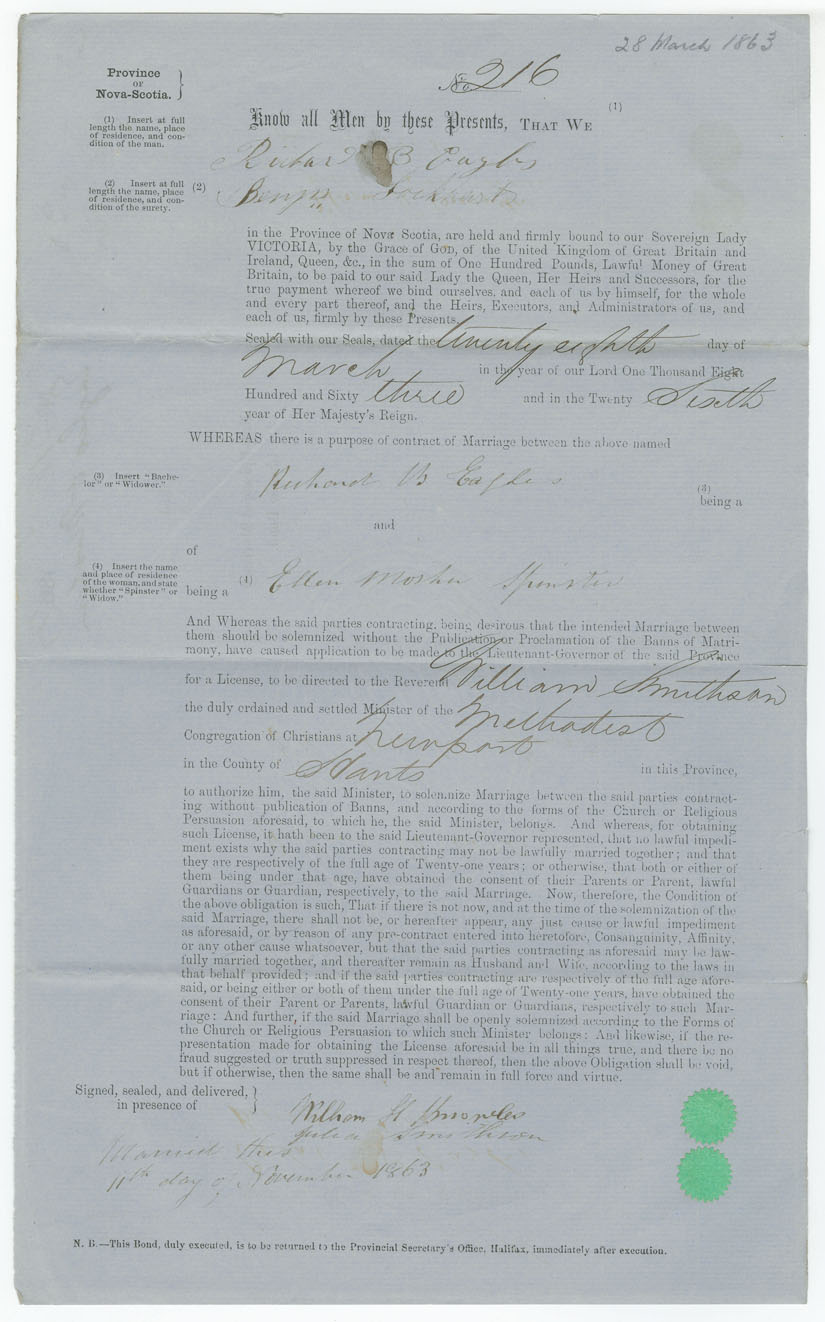 28 March 1863
No 216
Province
OF
Nova-Scotia.
Know all Men by these Presents, THAT WE (1)
(1) Insert at full
length the name, place
of residence, and con-
dition of the man.
Richard B Eagles
(2) Insert at full
length the name, place
of residence, and con-
dition of the surety.
(2) Benjn
in the Province of Nova Scotia, are held and firmly bound to our Sovereign Lady
VICTORIA, by the Grace of GOD, of the United Kingdom of Great Britain and
Ireland, Queen, &c., in the sum of One Hundred Pounds, Lawful Money of Great
Britain, to be paid to our said Lady the Queen, Her Heirs and Successors, for the
true payment whereof we bind ourselves, and each of us by himself, for the whole
and every part thereof, and the Heirs, Executors, and Administrators of us, and
each of us, firmly by these Presents.
Sealed with our Seals, dated the twenty eighth day of
March in the year of our Lord One Thousand Eight
Hundred and Sixty three and in the Twenty Sixth
year of Her Majesty's Reign.
WHEREAS there is a purpose of contract of Marriage between the above named
(3) Insert "Bache-
lor" or "Widower."
Richard B Eagles (3)
being a
and
of
(4) Insert the name
and place of residence
of the woman, and state
whether "Spinster" or
"Widow."
being a (4) Ellen Mosher Spinster
And Whereas the said parties contracting, being desirous that the intended Marriage between
them should be solemnized without the Publication or Proclamation of the Banns of Matri-
mony, have caused application to be made to the Lieutenant-Governor of the said Province
for a License, to be directed to the Reverend William Smithson
the duly ordained and settled Minister of the Methodist
Congregation of Christians at Newport
in the County of Hants in this Province,
to authorize him, the said Minister, to solemnize Marriage between the said parties contract-
ing without publication of Banns, and according to the forms of the Church or Religious
Persuasion aforesaid, to which he, the said Minister, belongs. And whereas, for obtaining
such License, it hath been to the said Lieutenant-Governor represented, that no lawful impedi-
ment exists why the said parties contracting may not be lawfully married together; and that
they are respectively of the full age of Twenty-one years; or otherwise, that both or either of
them being under that age, have obtained the consent of their Parents or Parent, lawful
Guardians or Guardian, respectively, to the said Marriage. Now, therefore, the Condition of
the above obligation is such, That if there is not now, and at the time of the solemnization of the
said Marriage, there shall not be, or hereafter appear, any just cause or lawful impediment
as aforesaid, or by reason of any pre-contract entered into heretofore, Consanguinity, Affinity,
or any other cause whatsoever, but that the said parties contracting as aforesaid may be law-
fully married together, and thereafter remain as Husband and Wife, according to the laws in
that behalf provided; and if the said parties contracting are respectively of the full age afore-
said, or being either or both of them under the full age of Twenty-one years, have obtained the
consent of their Parent or Parents, lawful Guardian or Guardians, respectively to such Mar-
riage: And further, if the said Marriage shall be openly solemnized according to the Forms of
the Church or Religious Persuasion to which such Minister belongs: And likewise, if the re-
presentation made for obtaining the License aforesaid be in all things true, and there be no
fraud suggested or truth suppressed in respect thereof, then the above Obligation shall be void,
but if otherwise, then the same shall be and remain in full force and virtue.
Signed, sealed, and delivered,
in presence of
William H Knowles
Julia Smithson
Married this
11th day of November 1863
N. B.—This Bond, duly executed, is to be returned to the Provincial Secretary's Office, Halifax, immediately after execution.